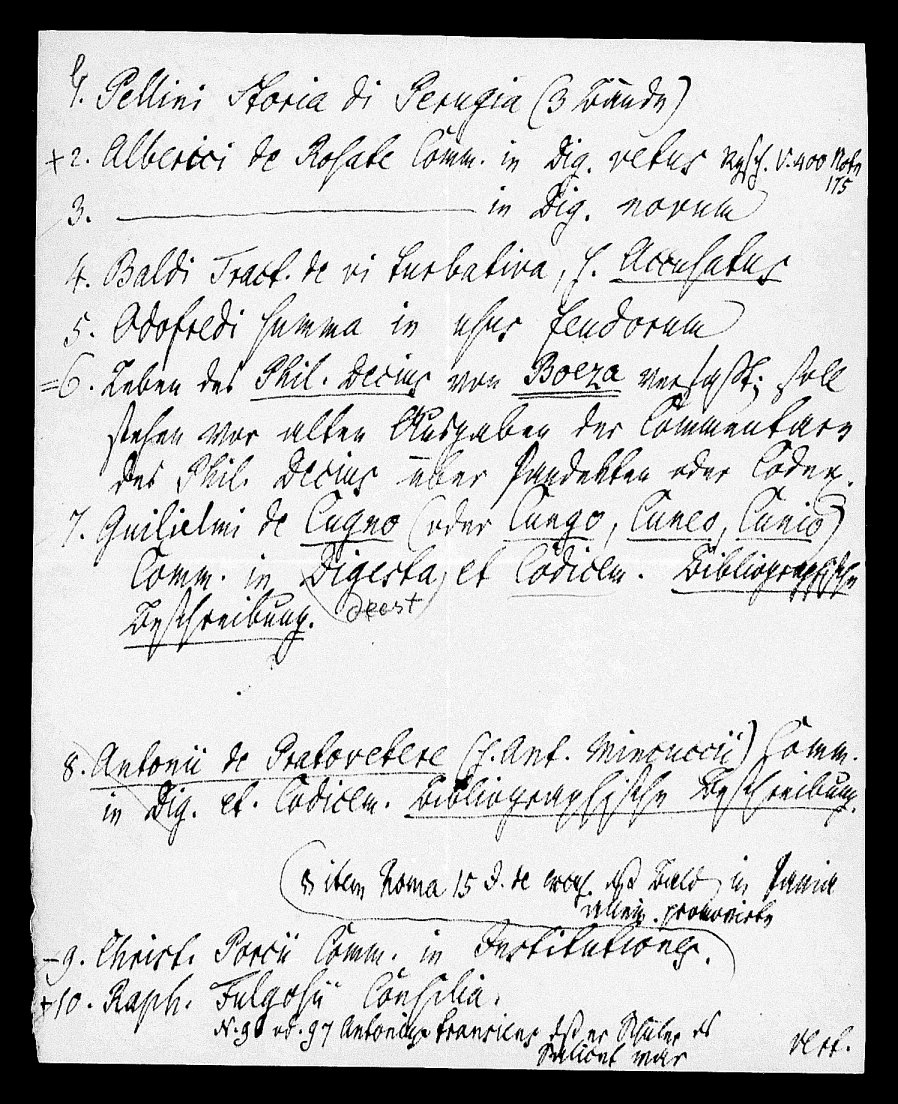 1. Pellini Storia di Perugia (3 Bände)
+ 2. Alberici de Rosate Comm. in Dig. vetus vgl. V. 400 Note 175
3. ——— in Dig. novum
4. Baldi Tract. de vi turbativa, s. Accusatus
5. Odofredi Summa in usus feudorum
= 6. Leben des Phil. Decius von Boeza verfaßt; soll
stehen vor alten Ausgaben der Commentare
des Phil. Decius über Pandekten oder Codex.
7. Guilielmi de Cugno (oder Cungo, Cuneo, Cunio)
Comm. in Digesta, et Codicem. Bibliographische
Beschreibung. deest
8. Antonii de Pratovetere (s. Ant. Minuccii) Comm.
in Dig. et. Codicem. Bibliographische Beschreibung.
item 15 D. de daß Bald in Pavia
promovirte
– 9. Christ. Porcii Comm. in Institutiones.
+ 10. Raph. Fulgosii Consilia.
N. 96 od. 97 Antonius daß er Schüler des
Salicet war
vert.